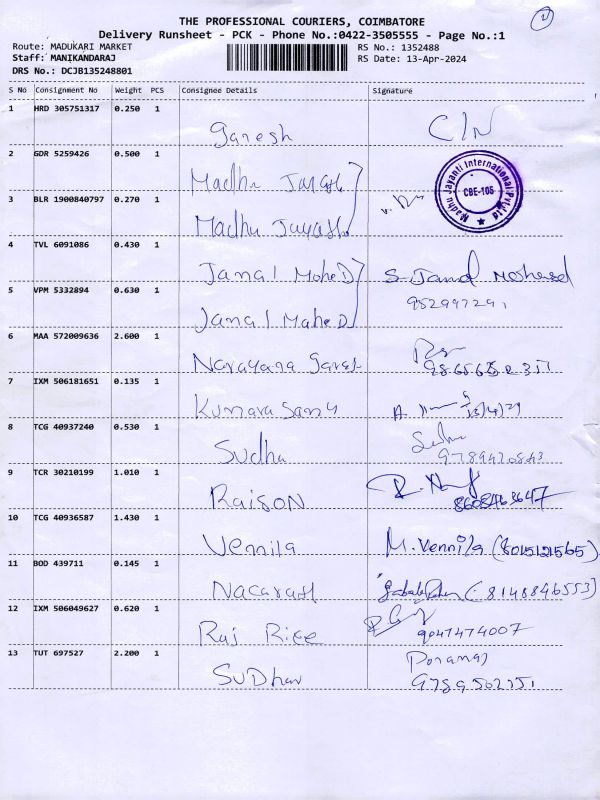 THE PROFESSIONAL COURIERS, COIMBATORE
Delivery Runsheet - PCK - Phone No.:0422-3505555 - Page No.:1
Route: MADUKARI MARKET
RS No.: 1352488
Staff: MANIKANDARAJ
RS Date: 13-Apr-2024
DRS No.: DCJB135248801
S No Consignment No Weight PCS Consignee Details Signature
1 HRD 305751317 0.250 1
Ganesh
2 GDR 5259426 0.500 1
Madhu
Madhu Jayanti International Pvt Ltd
CBE-105
3 BLR 1900840797 0.270 1
Madhu
4 TVL 6091086 0.430 1
Jamal Mohed S. Jamal
5 VPM 5332894 0.630 1
Jamal Mahed
6 MAA 572009636 2.600 1
Narayana
7 IXM 506181651 0.135 1
Kumara Samy
8 TCG 40937240 0.530 1
Sudha
9 TCR 30210199 1.010 1
Raison
10 TCG 40936587 1.430 1
Vennila M. Vennila (8015121565)
11 BOD 439711 0.145 1
(: 8148846553)
12 IXM 506049627 0.620 1
Raj Rice 9047474007
13 TUT 697527 2.200 1
SuDhar